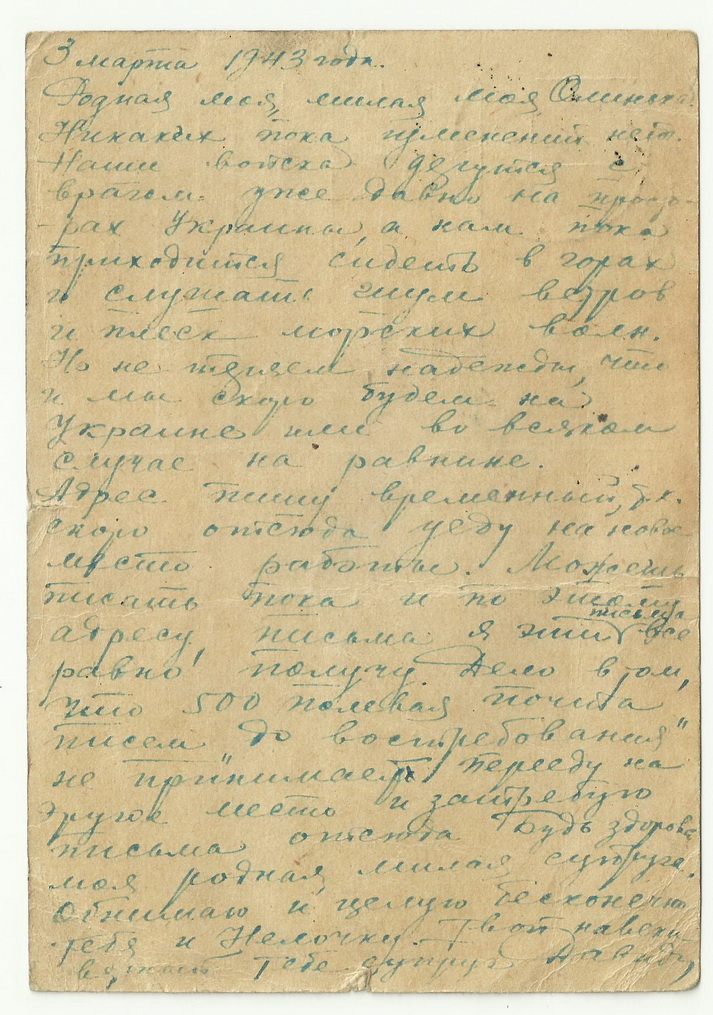 3 марта 1943 года.
Родная моя, милая моя Олинька!
Никаких пока изменений нет.
Наши войска дерутся с
врагом уже давно на просто-
-рах Украины, а нам пока
приходится сидеть в горах
и слушать шум ветров
и плеск морских волн.
Но не теряем надежды, что
и мы скоро будем на
Украине или во всяком
случае на равнине.
Адрес пишу временный, т.к.
скоро отсюда уеду на новое
место работы. Можешь
писать пока и по этому
адресу, письма я эти все
письма
равно получу. Дело в том,
что 500 полевая почта
писем "до востребования"
не принимает. Перееду на
другое место и затребую
письма отсюда. Будь здорова
моя родная, милая супруга.
Обнимаю и целую бесконечно
тебя и Нелочку. Твой навеки
тебе супруг Давид